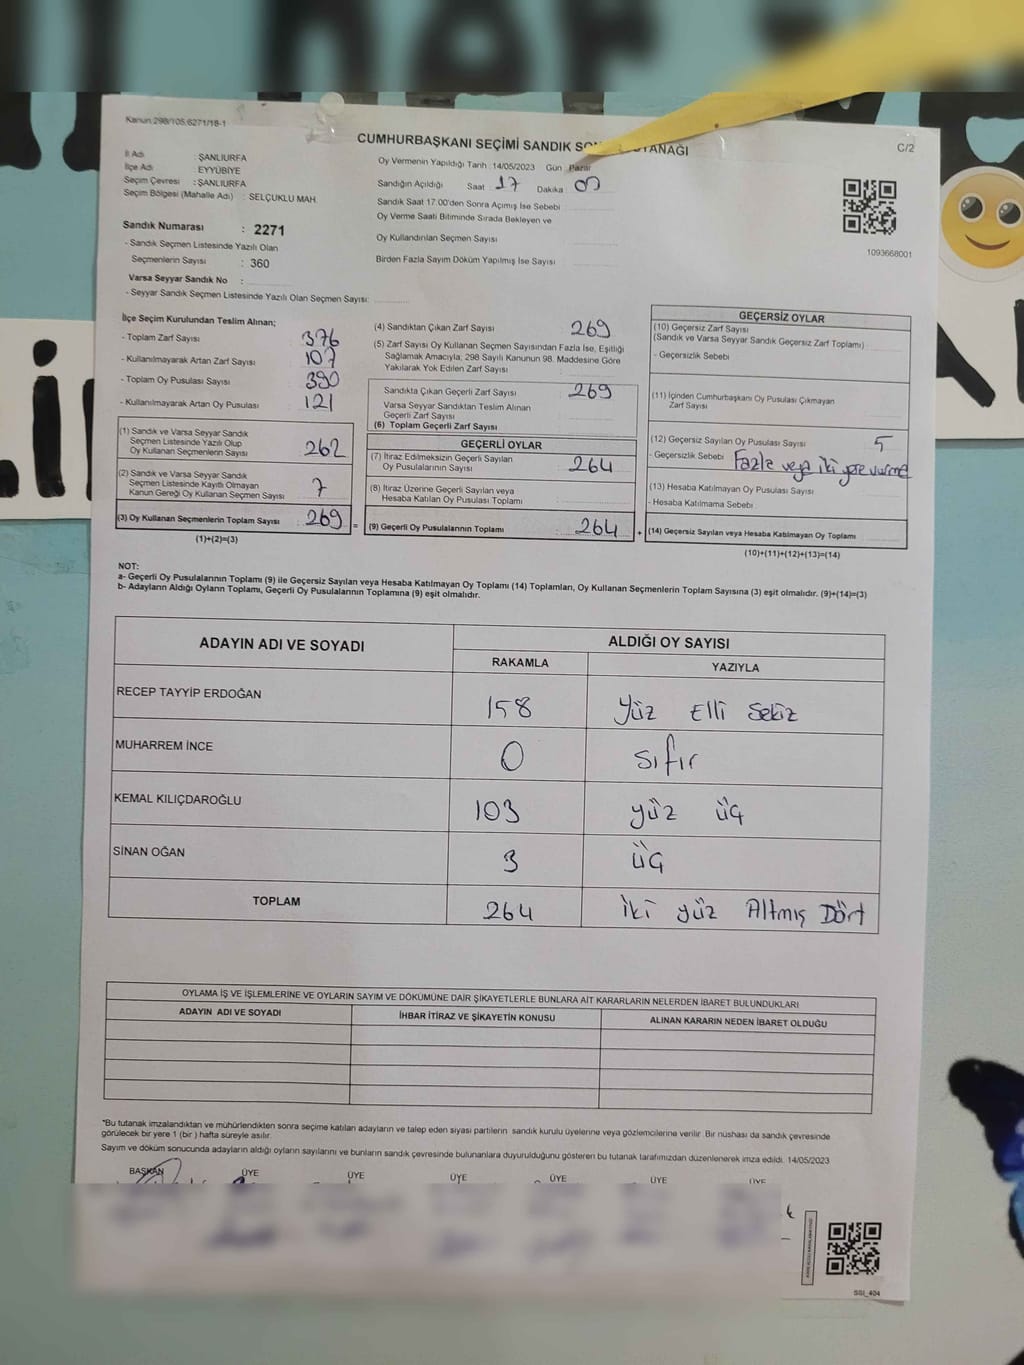 Kanun:298/105,6271/18-1
CUMHURBAŞKANI SEÇİMİ SANDIK
C/2
İl Adı : ŞANLIURFA
İlçe Adı : EYYÜBİYE
Seçim Çevresi : ŞANLIURFA
Seçim Bölgesi (Mahalle Adı) : SELÇUKLU MAH.
Oy Vermenin Yapıldığı Tarih :14/05/2023 Gün :Pazar
Sandığın Açıldığı Saat : 17 Dakika
Sandık Saat 17.00'den Sonra Açımış İse Sebebi
Oy Verme Saati Bitiminde Sırada Bekleyen ve
Oy Kullandırılan Seçmen Sayısı
Birden Fazla Sayım Döküm Yapılmış İse Sayısı
1093668001
Sandık Numarası : 2271
- Sandık Seçmen Listesinde Yazılı Olan
Seçmenlerin Sayısı : 360
Varsa Seyyar Sandık No :
- Seyyar Sandık Seçmen Listesinde Yazılı Olan Seçmen Sayısı:
İlçe Seçim Kurulundan Teslim Alınan;
- Toplam Zarf Sayısı : 376
- Kullanılmayarak Artan Zarf Sayısı : 107
- Toplam Oy Pusulası Sayısı : 390
- Kullanılmayarak Artan Oy Pusulası : 121
(1) Sandık ve Varsa Seyyar Sandık
Seçmen Listesinde Yazılı Olup
Oy Kullanan Seçmenlerin Sayısı : 262
(2) Sandık ve Varsa Seyyar Sandık
Seçmen Listesinde Kayıtlı Olmayan
Kanun Gereği Oy Kullanan Seçmen Sayısı : 7
(3) Oy Kullanan Seçmenlerin Toplam Sayısı : 269 =
(1)+(2)=(3)
(4) Sandıktan Çıkan Zarf Sayısı 269
(5) Zarf Sayısı Oy Kullanan Seçmen Sayısından Fazla İse, Eşitliği
Sağlamak Amacıyla; 298 Sayılı Kanunun 98. Maddesine Göre
Yakılarak Yok Edilen Zarf Sayısı
Sandıkta Çıkan Geçerli Zarf Sayısı : 269
Varsa Seyyar Sandıktan Teslim Alınan
Geçerli Zarf Sayısı
(6) Toplam Geçerli Zarf Sayısı
GEÇERLİ OYLAR
(7) İtiraz Edilmeksizin Geçerli Sayılan
Oy Pusulalarının Sayısı : 264
(8) İtiraz Üzerine Geçerli Sayılan veya
Hesaba Katılan Oy Pusulası Toplamı
(9) Geçerli Oy Pusulalarının Toplamı : 264 +
GEÇERSİZ OYLAR
(10) Geçersiz Zarf Sayısı
(Sandık ve Varsa Seyyar Sandık Geçersiz Zarf Toplamı)
- Geçersizlik Sebebi
(11) İçinden Cumhurbaşkanı Oy Pusulası Çıkmayan
Zarf Sayısı
(12) Geçersiz Sayılan Oy Pusulası Sayısı 5
- Geçersizlik Sebebi Fazla veya iki yere vurma
(13) Hesaba Katılmayan Oy Pusulası Sayısı
- Hesaba Katılmama Sebebi
(14) Geçersiz Sayılan veya Hesaba Katılmayan Oy Toplamı
(10)+(11)+(12)+(13)=(14)
NOT:
a- Geçerli Oy Pusulalarının Toplamı (9) ile Geçersiz Sayılan veya Hesaba Katılmayan Oy Toplamı (14) Toplamları, Oy Kullanan Seçmenlerin Toplam Sayısına (3) eşit olmalıdır. (9)+(14)=(3)
b- Adayların Aldığı Oyların Toplamı, Geçerli Oy Pusulalarının Toplamına (9) eşit olmalıdır.
ADAYIN ADI VE SOYADI ALDIĞI OY SAYISI
RAKAMLA YAZIYLA
RECEP TAYYİP ERDOĞAN 158 Yüz Elli Sekiz
MUHARREM İNCE 0 Sıfır
KEMAL KILIÇDAROĞLU 103 yüz üç
SİNAN OĞAN 3 üç
TOPLAM 264 iki yüz Altmış Dört
OYLAMA İŞ VE İŞLEMLERİNE VE OYLARIN SAYIM VE DÖKÜMÜNE DAİR ŞİKAYETLERLE BUNLARA AİT KARARLARIN NELERDEN İBARET BULUNDUKLARI
ADAYIN ADI VE SOYADI İHBAR İTİRAZ VE ŞİKAYETİN KONUSU ALINAN KARARIN NEDEN İBARET OLDUĞU
*Bu tutanak imzalandıktan ve mühürlendikten sonra seçime katılan adayların ve talep eden siyasi partilerin sandık kurulu üyelerine veya gözlemcilerine verilir. Bir nüshası da sandık çevresinde
görülecek bir yere 1 (bir ) hafta süreyle asılır.
Sayım ve döküm sonucunda adayların aldığı oyların sayılarını ve bunların sandık çevresinde bulunanlara duyurulduğunu gösteren bu tutanak tarafımızdan düzenlenerek imza edildi. 14/05/2023
BAŞKAN ÜYE ÜYE ÜYE ÜYE ÜYE ÜYE
SSI_404